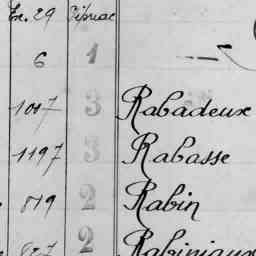 Ex. 29 Cipriac
6 1
1017 3 Rabadeux
1197 3 Rabasse
819 2 Rabin
827 2 Rabiniaux